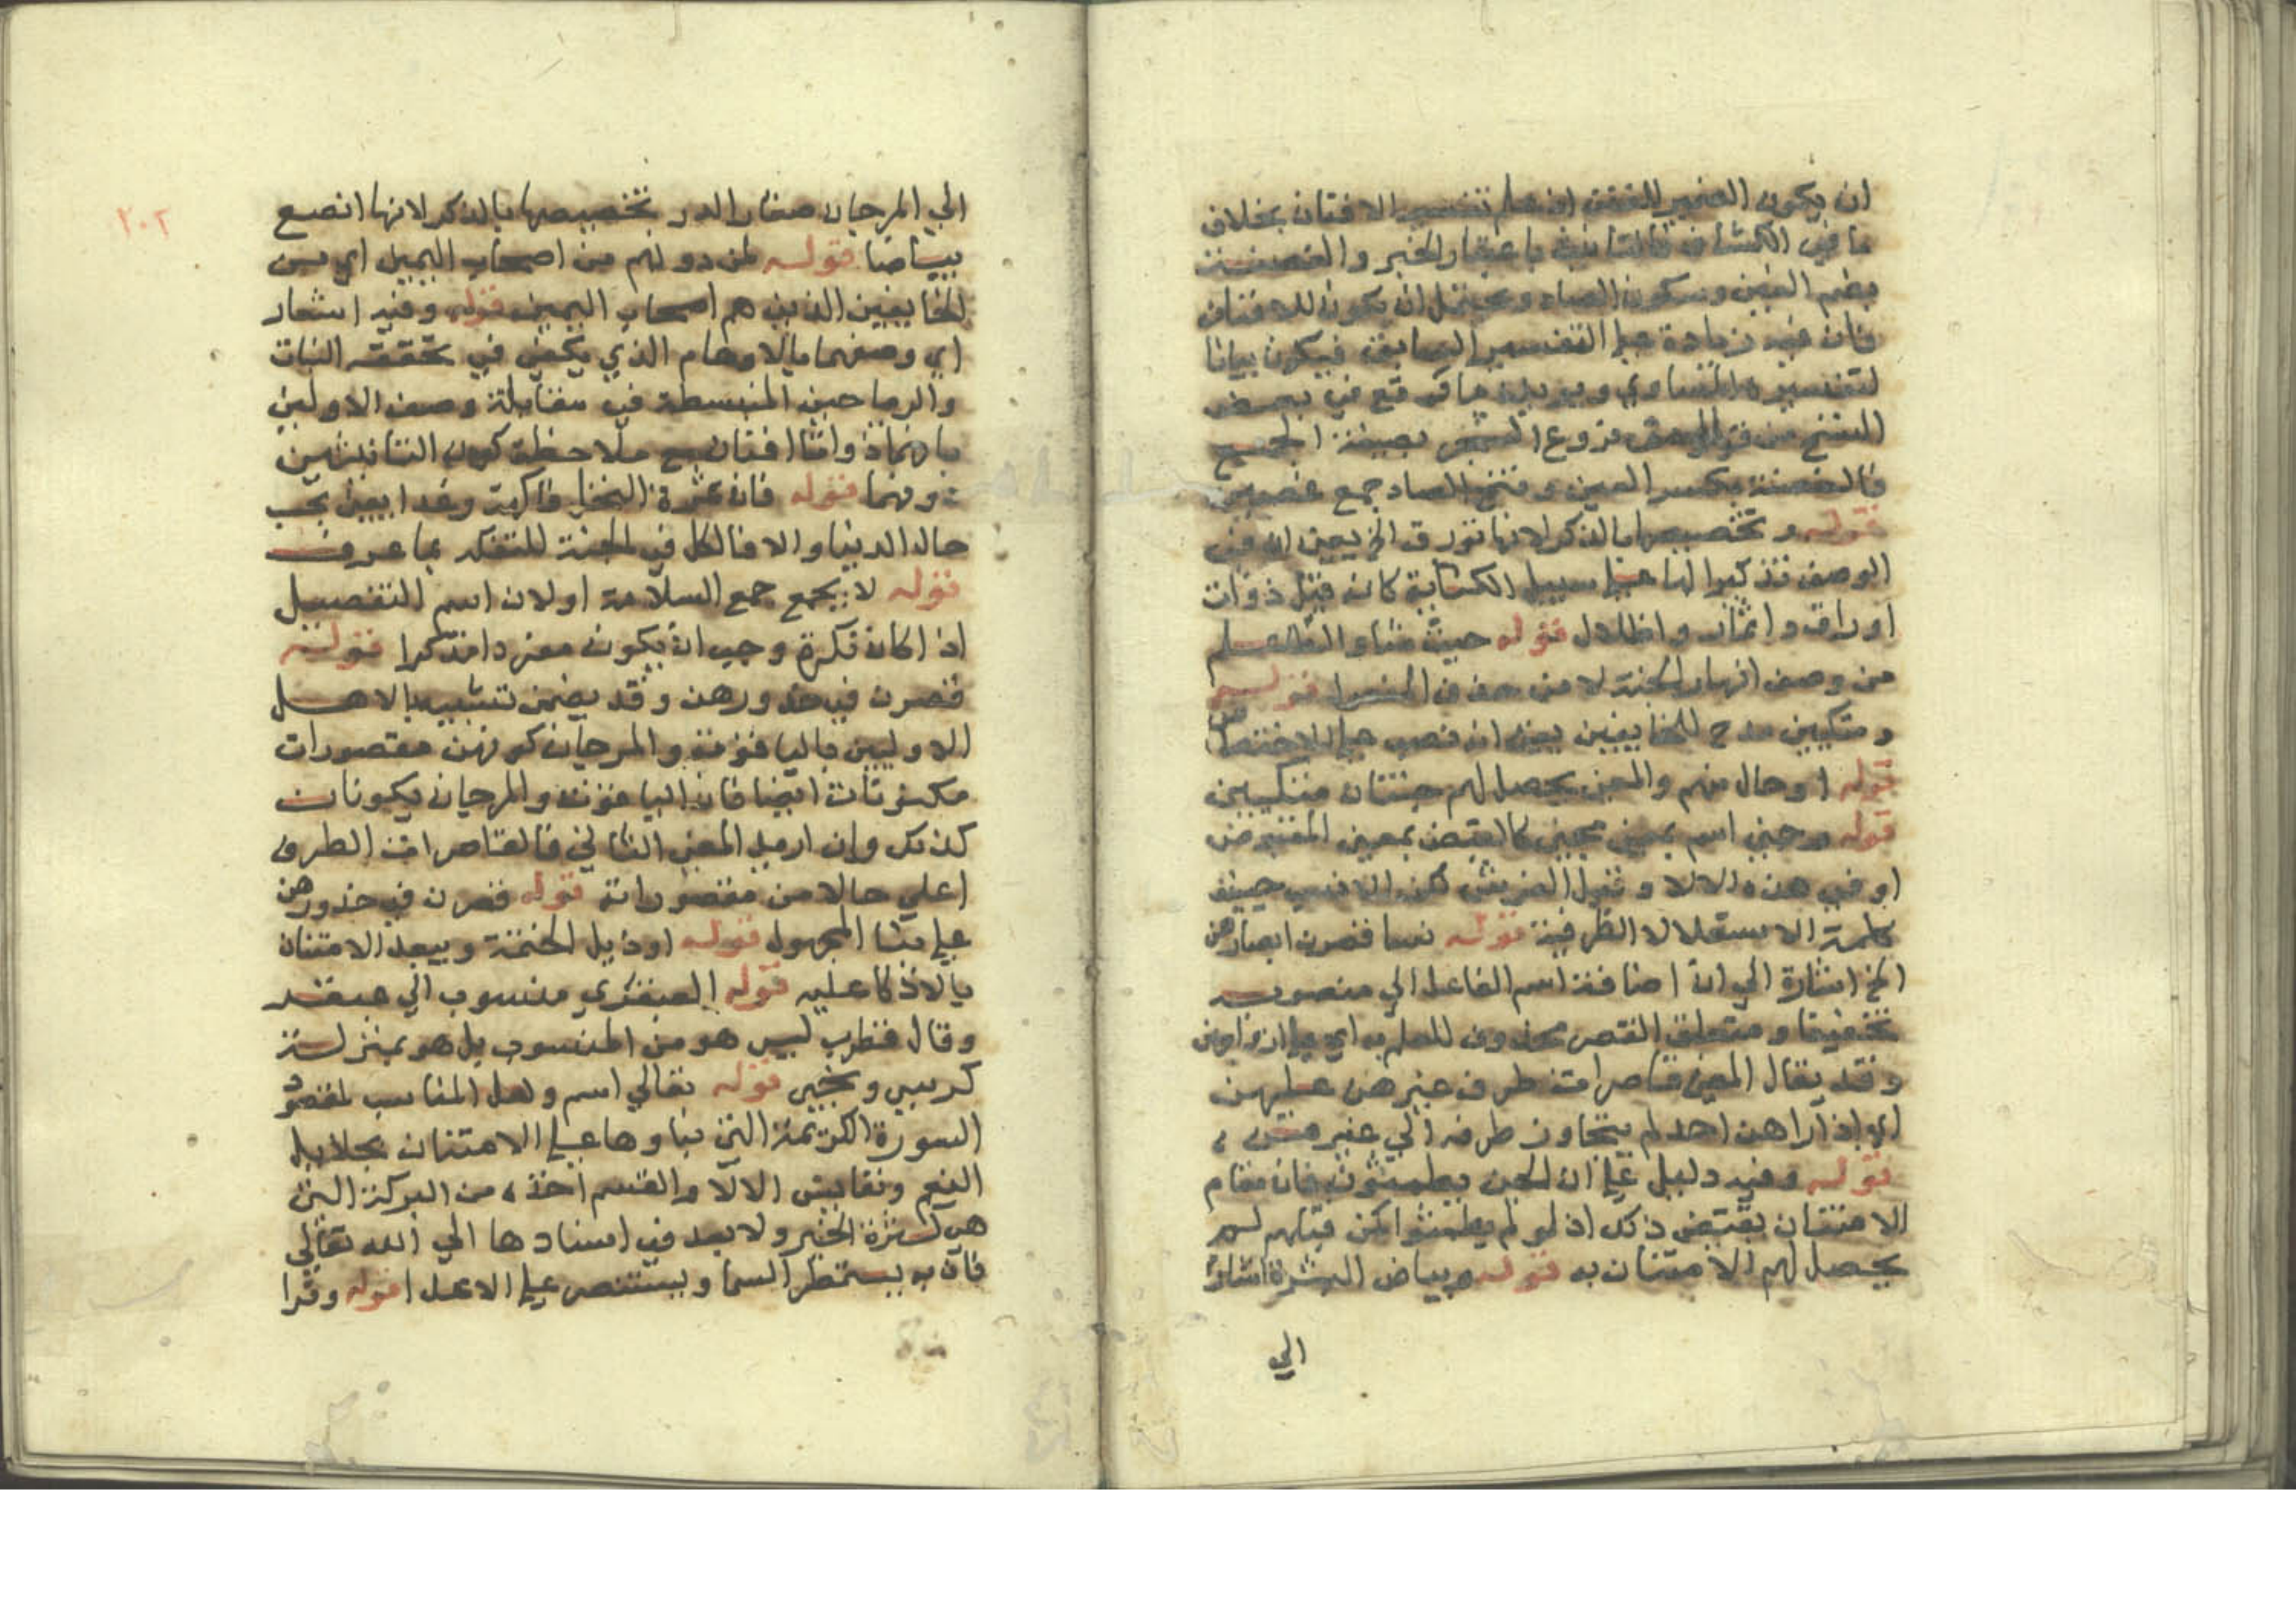 ان يكون الضمير للغصنة اذ علم تفسير الافنان بخلاف
ما في الكشاف فالتانيث باعتبار الخبر والغصنة
بضم الغين وسكون الصاد ويحتمل ان يكون للافنان
فان فيه زيادة على التفسير السابق فيكون بيانا
لتفسيره المساوي ويؤيده ما وقع في بعض
النسخ من فروع الشجر بصيغة الجمع
فالغصنة بكسر الغين وفتح الصاد جمع غصن
قوله وتخصيصها بالذكر لانها تورق الخ يعني ان في
الوصف تذكيرا لها على سبيل الكناية كانه قيل ذوات
اوراق واثمار واظلال قوله حيث شاوا
من وصف انهار الجنة لا من حذف المفعول قوله
ومتكيين مدح للخايفين يعني انه نصب على الاختصاص
قوله او حال منهم والمعنى يحصل لهم جنتان متكيين
قوله وجنى اسم بمعنى مجني كالقبض بمعنى المقبوض
او في هذه الالا وقيل الفرش لكن الانسب حينئذ
كلمة الاستعلا لا الظرفية قوله نسا قصرن ابصارهن
الخ اشارة الي ان اضافة اسم الفاعل الي منصوبه
تخفيفا ومتعلق القصر محذوف للعلم به اي على ازواجهن
وقد يقال المعنى قاصرات طرف غيرهن عليهن
اي اذا راهن احد لم يتجاوز طرفه الي غيرهن
قوله وفيه دليل على ان الجن يطمثون فان مقام
الامتنان يقتضي ذلك اذ لو لم يطمثوا لمن قبلهم لم
يحصل لهم الامتنان به قوله وبياض البشرة اشارة
الي
٢٠٢
الي المرجان صغار الدر تخصيصها بالذكر لانها انصع
بياضا قوله لمن دونهم من اصحاب اليمين اي من
الخايفين الذين هم اصحاب اليمين قوله وفيه اشعار
اي وصفهما بالادهام الذي يكفي في تحققه النبات
والرياحين المنبسطة في مقابلة وصف الاولين
بانهما ذواتا افنان مع ملاحظة كون الثانيتين
دونهما قوله فان ثمرة النخل فاكهة وغدا يعني بحسب
حال الدنيا والا فالكل في الجنة للتفكه بما عرفت
قوله لا يجمع جمع السلامة اولان اسم التفضيل
اذا كان نكرة وجب ان يكون مفردا مذكرا قوله
قصرن في خدورهن وقد يضمن تشبيه الاهل
الاوليين بالياقوت والمرجان كونهن مقصورات
مكنونات ايضا فان الياقوت والمرجان يكونان
كذلك وان اريد المعنى الثاني فالقاصرات الطرف
اعلي حالا من مقصوراته قوله قصرن في خدورهن
على بنا المجهول قوله اوذيل الخيمة ويبعد الامتنان
بالاتكا عليه قوله العبقري منسوب الي عبقر
وقال قطرب ليس هو من المنسوب بل هو بمنزلة
كرسي وبختي قوله تعالي اسمه ولعل المناسب لمقصود
السورة الكريمة التي بناوها على الامتنان بجلايل
النعم ونفايس الالا والقسم اخذه من البركة التي
هي كثرة الخير ولا بعد في اسنادها الي الله تعالي
فان به يستمطر السما ويستنصر على الاعدا قوله وقرا